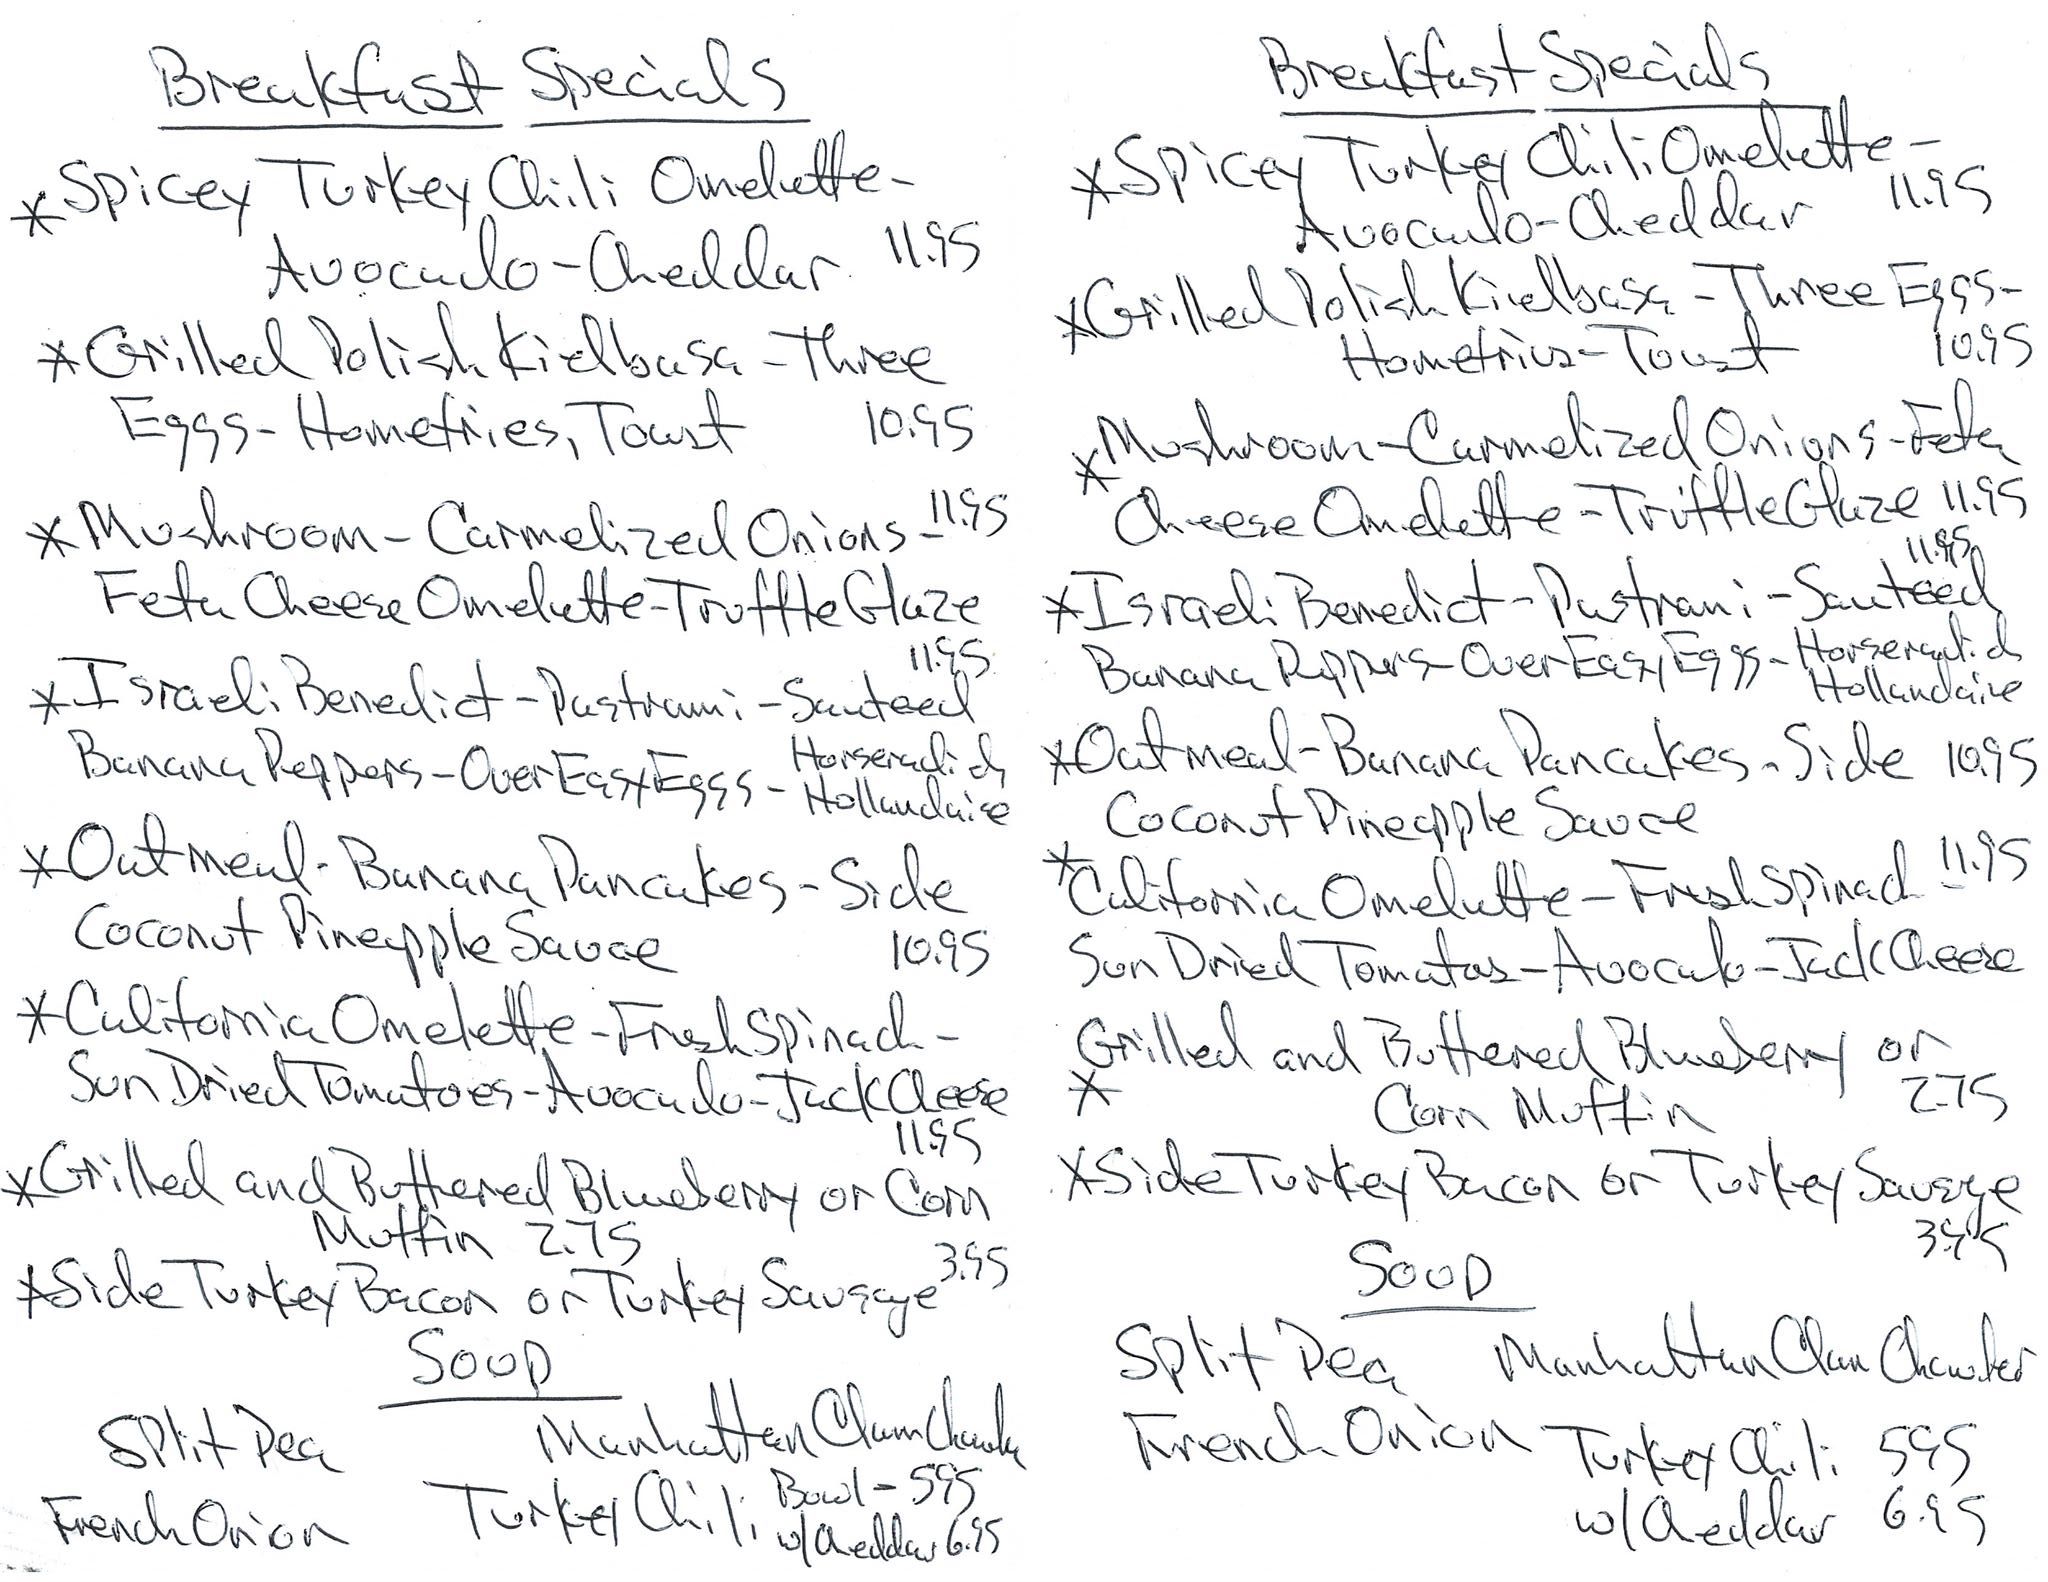 Breakfast Specials
* Spicey Turkey Chili Omelette-
Avocado-Cheddar 11.95
* Grilled Polish Kielbasa-Three
Eggs-Homefries, Toast 10.95
* Mushroom-Carmelized Onions- 11.95
Feta Cheese Omelette-Truffle Glaze
11.95
* Israeli Benedict-Pastrami-Sauteed
Banana Peppers-Over Easy Eggs- Horseradish
Hollandaise
* Oatmeal-Banana Pancakes-Side
Coconut Pineapple Sauce 10.95
* California Omelette-Fresh Spinach-
Sun Dried Tomatoes-Avocado-Jack Cheese
11.95
* Grilled and Buttered Blueberry or Corn
Muffin 2.75
* Side Turkey Bacon or Turkey Sausage 3.95
Soup
Split Pea Manhattan Clam Chowder
French Onion Turkey Chili Bowl-5.95
w/Cheddar 6.95
Breakfast Specials
* Spicey Turkey Chili Omelette-
Avocado-Cheddar 11.95
* Grilled Polish Kielbasa-Three Eggs-
Homefries-Toast 10.95
* Mushroom-Carmelized Onions-Feta
Cheese Omelette-Truffle Glaze 11.95
11.95
* Israeli Benedict-Pastrami-Sauteed
Banana Peppers-Over Easy Eggs- Horseradish
Hollandaise
* Oatmeal-Banana Pancakes-Side 10.95
Coconut Pineapple Sauce
* California Omelette-Fresh Spinach- 11.95
Sun Dried Tomatoes-Avocado-Jack Cheese
Grilled and Buttered Blueberry or
* Corn Muffin 2.75
* Side Turkey Bacon or Turkey Sausage
3.95
Soup
Split Pea Manhattan Clam Chowder
French Onion Turkey Chili 5.95
w/Cheddar 6.95